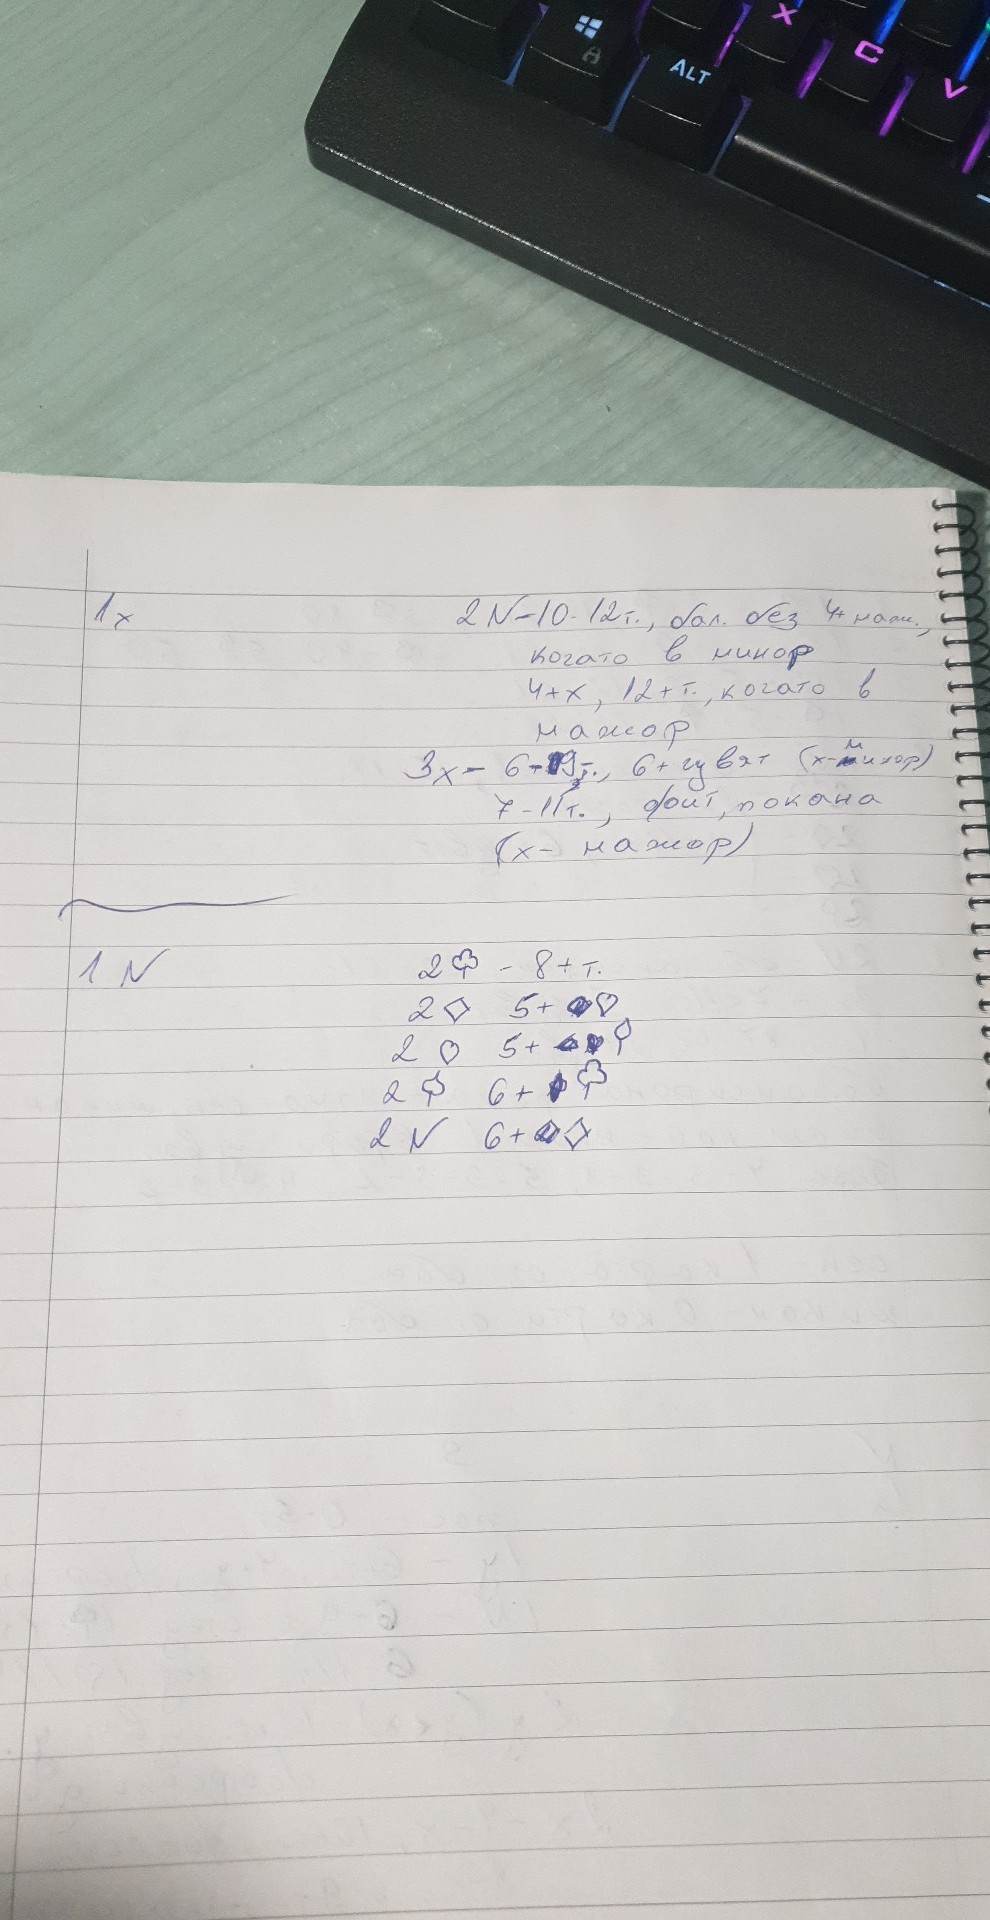 X
C
V
ALT
1x 2N-10-12т., бал. без 4+ маж.,
когато в минор
4+x, 12+т., когато в
мажор
3x- 6-9т., 6+цвят (x-минор)
7-11т., фит, покана
(x- мажор)
1N 2♣ - 8+т.
2♢ 5+ ♡
2♡ 5+ ♤
2♧ 6+ ♧
2N 6+ ♢